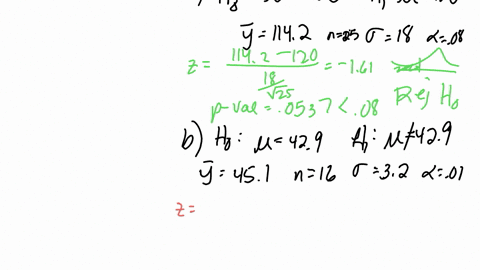 ȳ = 114.2 n=25 σ = 18 α=.08
z = (114.2 - 120) / (18/√25) = -1.61
p-val = .0537 < .08 Rej H₀
b) H₀: μ = 42.9 H₁: μ ≠ 42.9
ȳ = 45.1 n=16 σ=3.2 α=.01
z =